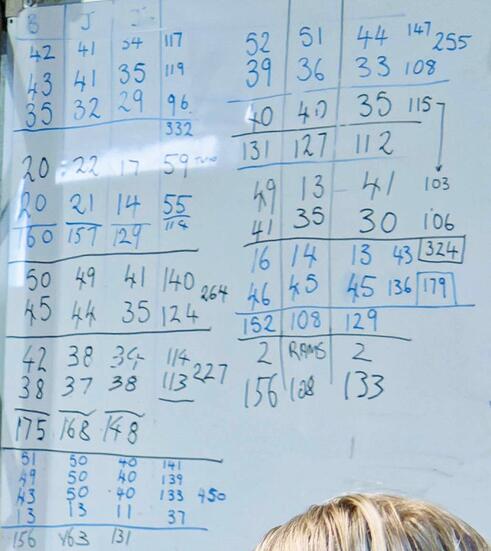 B J J
42 41 34 117
43 41 35 119
35 32 29 96
332
20 22 17 59
20 21 14 55
60 157 129 114
50 49 41 140
264
45 44 35 124
42 38 34 114
227
38 37 38 113
175 168 148
51 50 40 141
49 50 40 139
43 50 40 133 450
13 13 11 37
156 163 131
52 51 44 147 255
39 36 33 108
40 40 35 115
131 127 112
49 13 41 103
41 35 30 106
16 14 13 43 324
46 45 45 136 179
152 108 129
2 RAMS 2
156 128 133